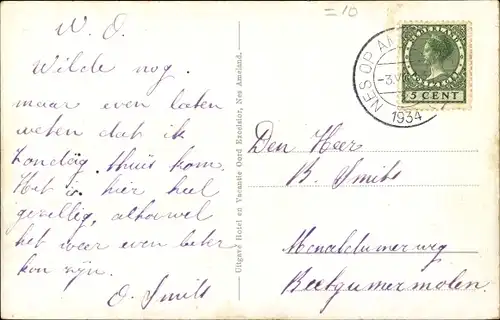 W. O.
Wilde nog
maar even laten
weten dat ik
Zondag thuis kom.
Het is hier heel
gezellig, alhoewel
het weer even beter
kon zijn.
O. Smits
Uitgave Hotel en Vacantie Oord Excelsior, Nes Ameland.
=10
NES OP AM
-3.V
1934
NEDERLAND
5 CENT
Den Heer
B. Smits
Menaldumerweg
Beetgumermolen.